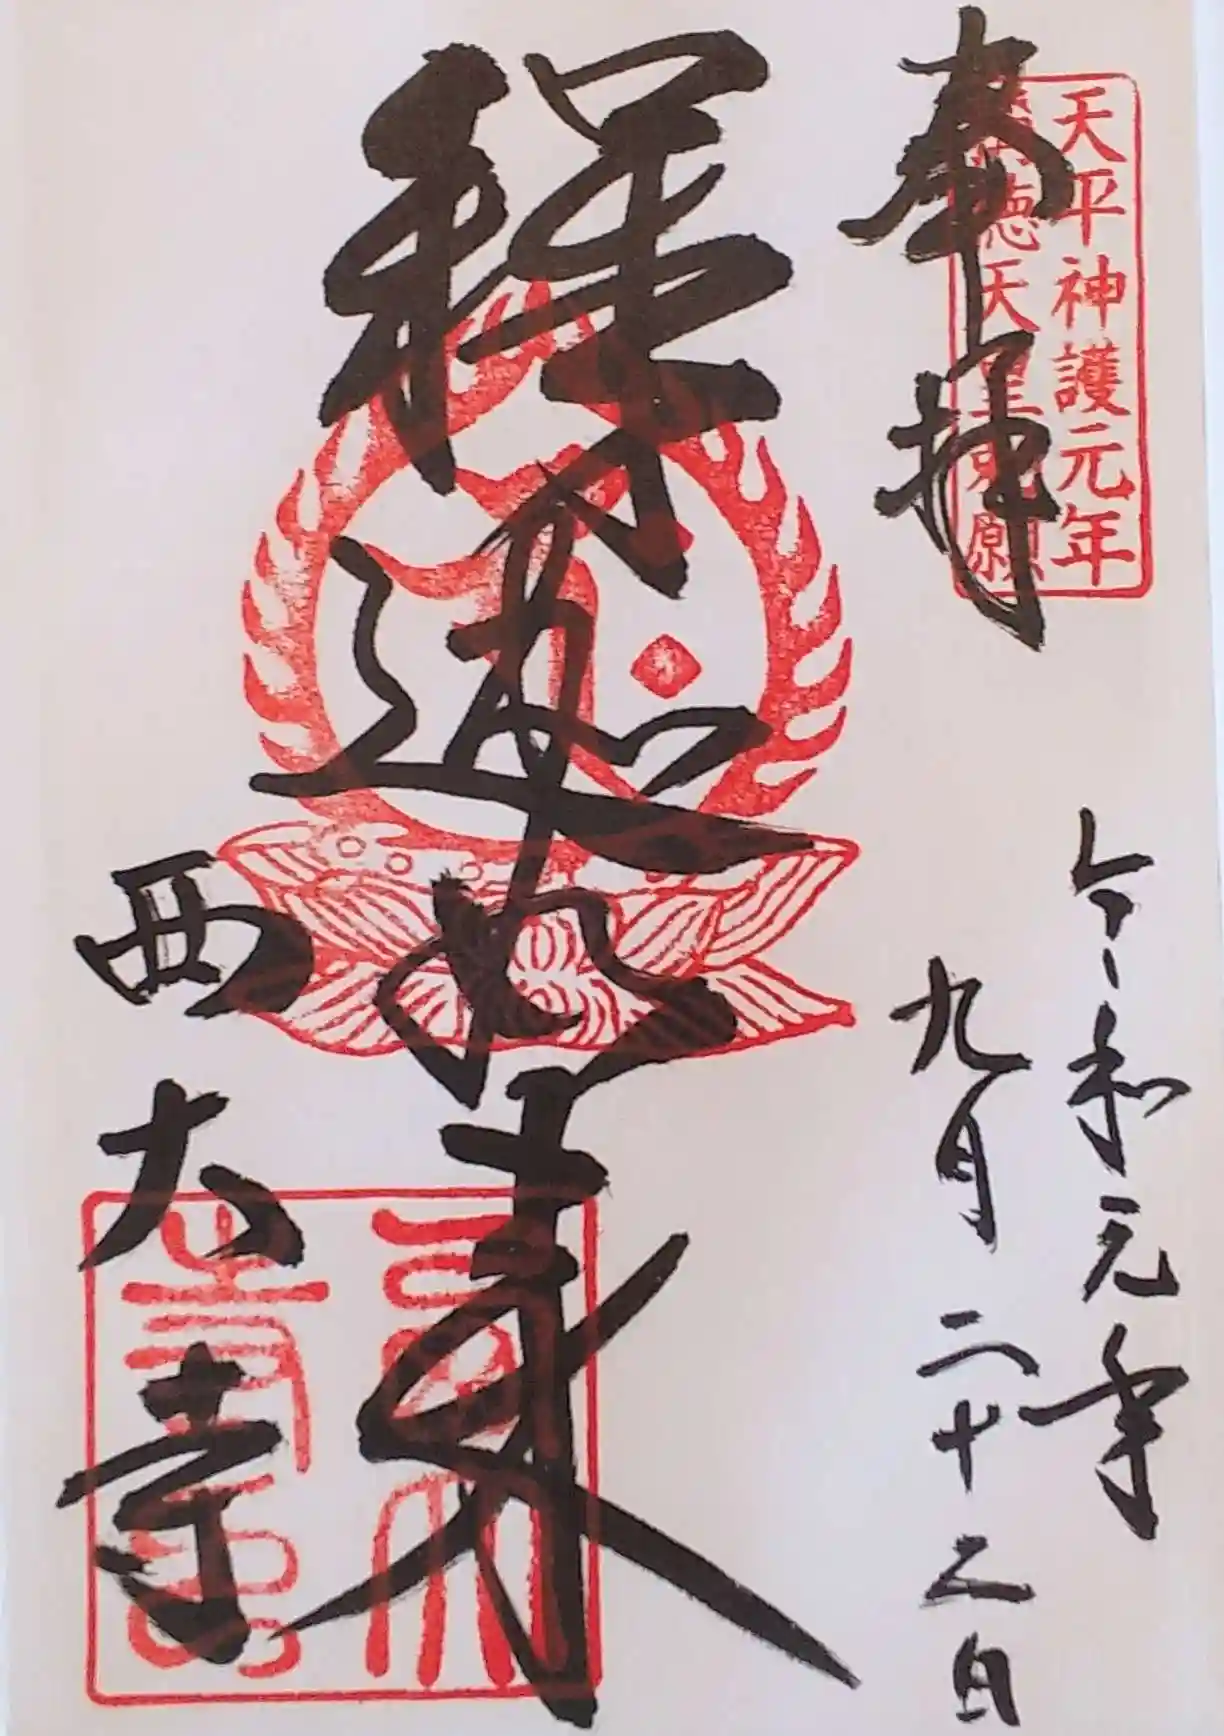 天平神護元年
稱徳天皇勅願
奉拝
令和元年
九月二十二日
釋迦如来
西大寺